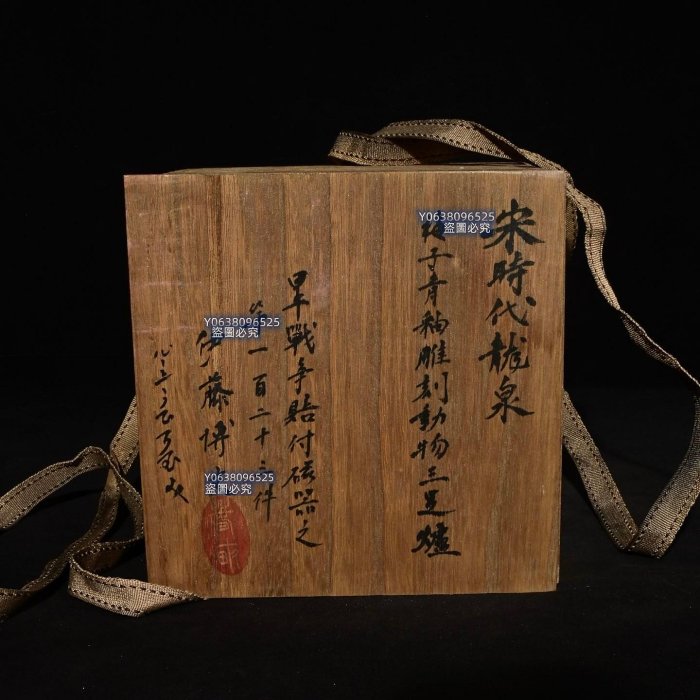 宋時代龍泉
子青釉雕刻動物三足爐
早戰爭賠付磁器之
一百二十三件
伊藤博
Y0638096525
盜圖必究
Y0638096525
盜圖必究
Y0638096525
盜圖必究